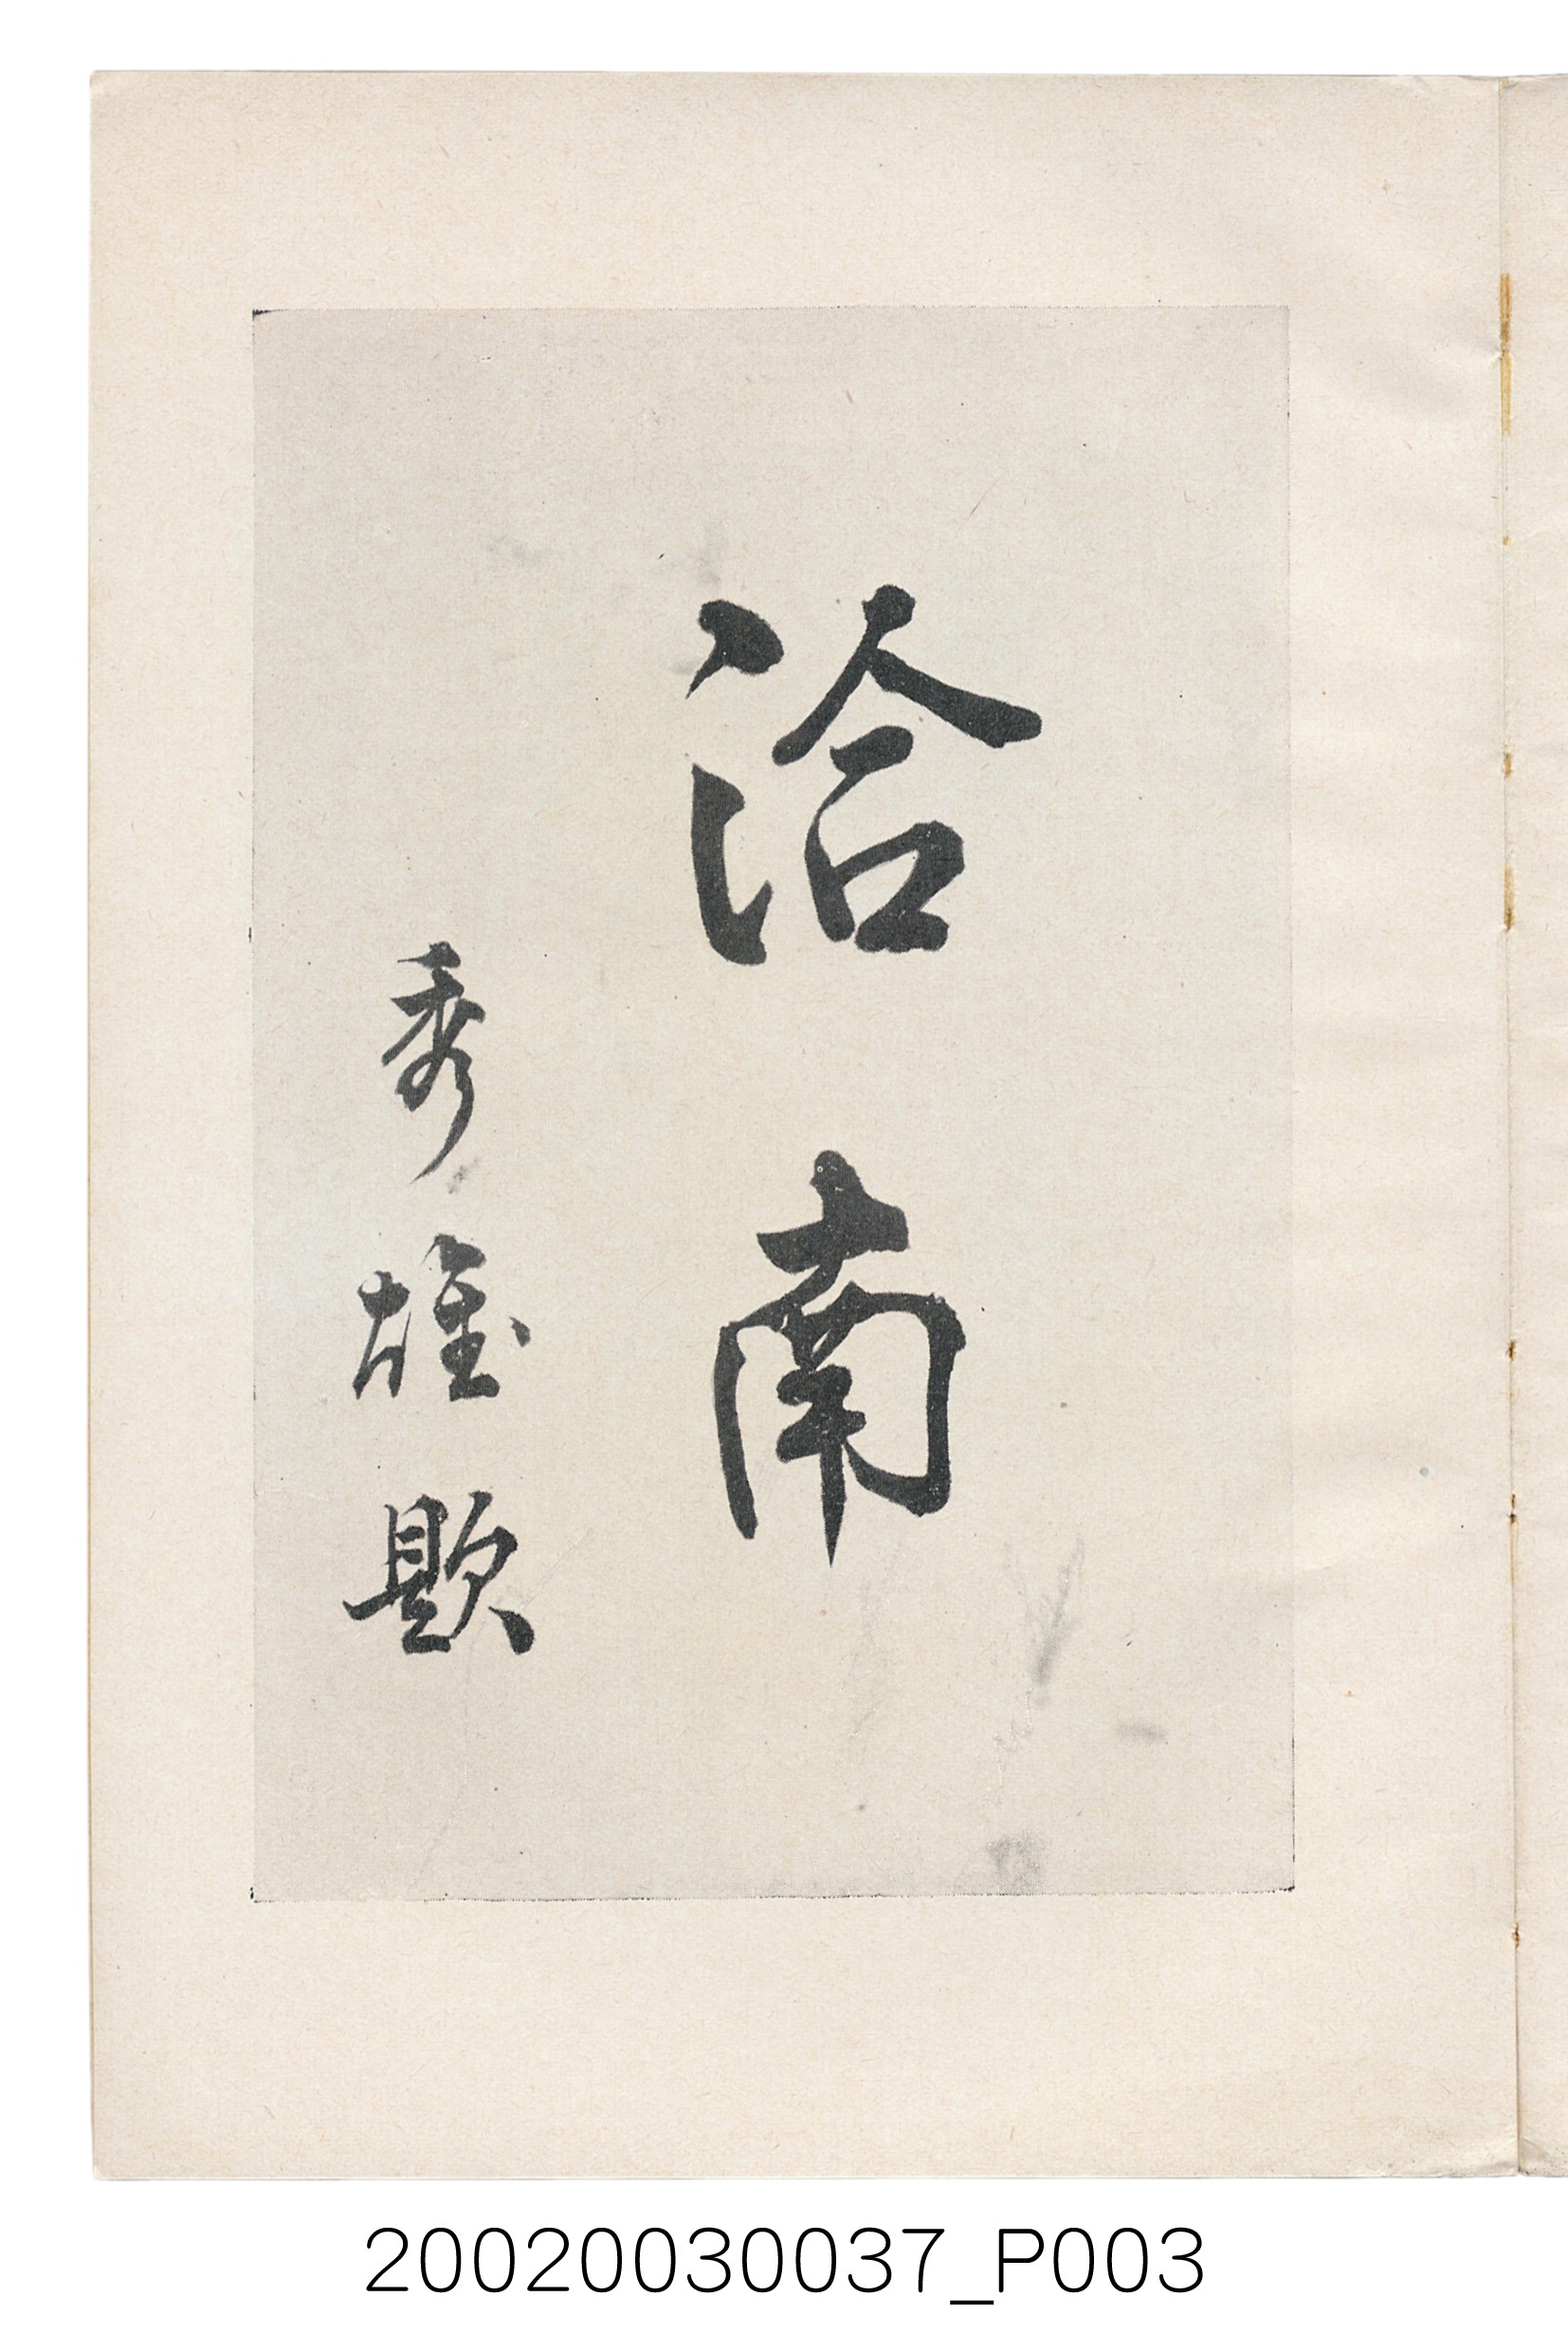 洽南
秀雄題
20020030037_P003